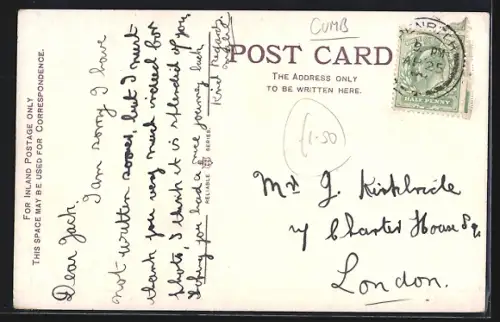 FOR INLAND POSTAGE ONLY
THIS SPACE MAY BE USED FOR CORRESPONDENCE.
Dear Jack.
I am sorry I have
not written sooner, but I must
thank you very much indeed for
Photo, I think it is splendid of you
I hope you had a nice journey back
Kind Regards
RELIABLE SERIES
CUMB
POST CARD
THE ADDRESS ONLY
TO BE WRITTEN HERE.
£1-50
HALF PENNY
Mr J. Kirkbride
Charter House Sq.
London.